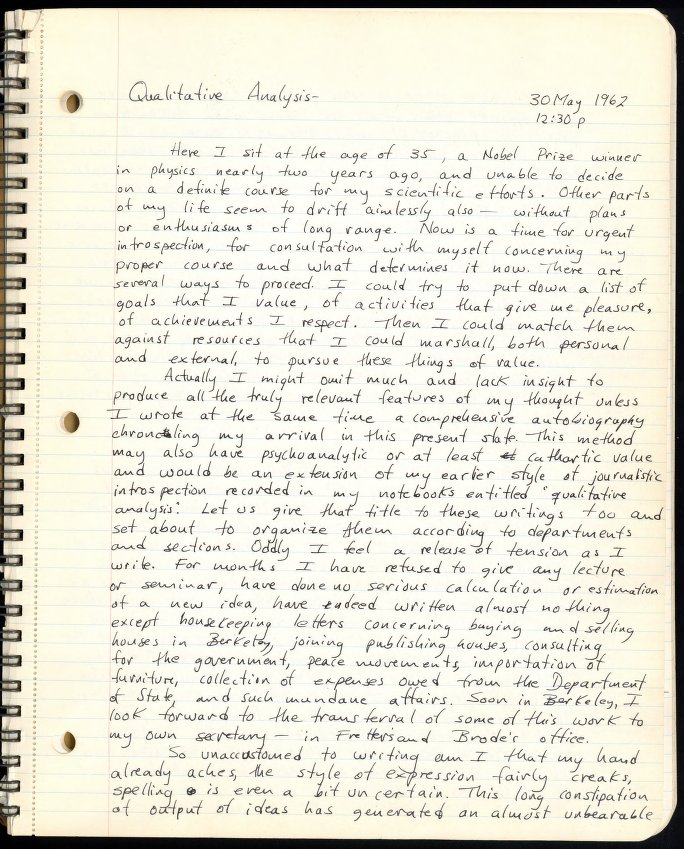 Qualitative Analysis-
30 May 1962
12:30 p
Here I sit at the age of 35, a Nobel Prize winner
in physics nearly two years ago, and unable to decide
on a definite course for my scientific efforts. Other parts
of my life seem to drift aimlessly also — without plans
or enthusiasms of long range. Now is a time for urgent
introspection, for consultation with myself concerning my
proper course and what determines it now. There are
several ways to proceed. I could try to put down a list of
goals that I value, of activities that give me pleasure,
of achievements I respect. Then I could match them
against resources that I could marshall, both personal
and external, to pursue these things of value.
Actually I might omit much and lack insight to
produce all the truly relevant features of my thought unless
I wrote at the same time a comprehensive autobiography
chronicling my arrival in this present state. This method
may also have psychoanalytic or at least cathartic value
and would be an extension of my earlier style of journalistic
introspection recorded in my notebooks entitled "qualitative
analysis." Let us give that title to these writings too and
set about to organize them according to departments
and sections. Oddly I feel a release of tension as I
write. For months I have refused to give any lecture
or seminar, have done no serious calculation or estimation
of a new idea, have indeed written almost nothing
except housekeeping letters concerning buying and selling
houses in Berkeley, joining publishing houses, consulting
for the government, peace movements, importation of
furniture, collection of expenses owed from the Department
of State, and such mundane affairs. Soon in Berkeley, I
look forward to the transferral of some of this work to
my own secretary — in Fretters and Brode's office.
So unaccustomed to writing am I that my hand
already aches, the style of expression fairly creaks,
spelling is even a bit uncertain. This long constipation
of output of ideas has generated an almost unbearable